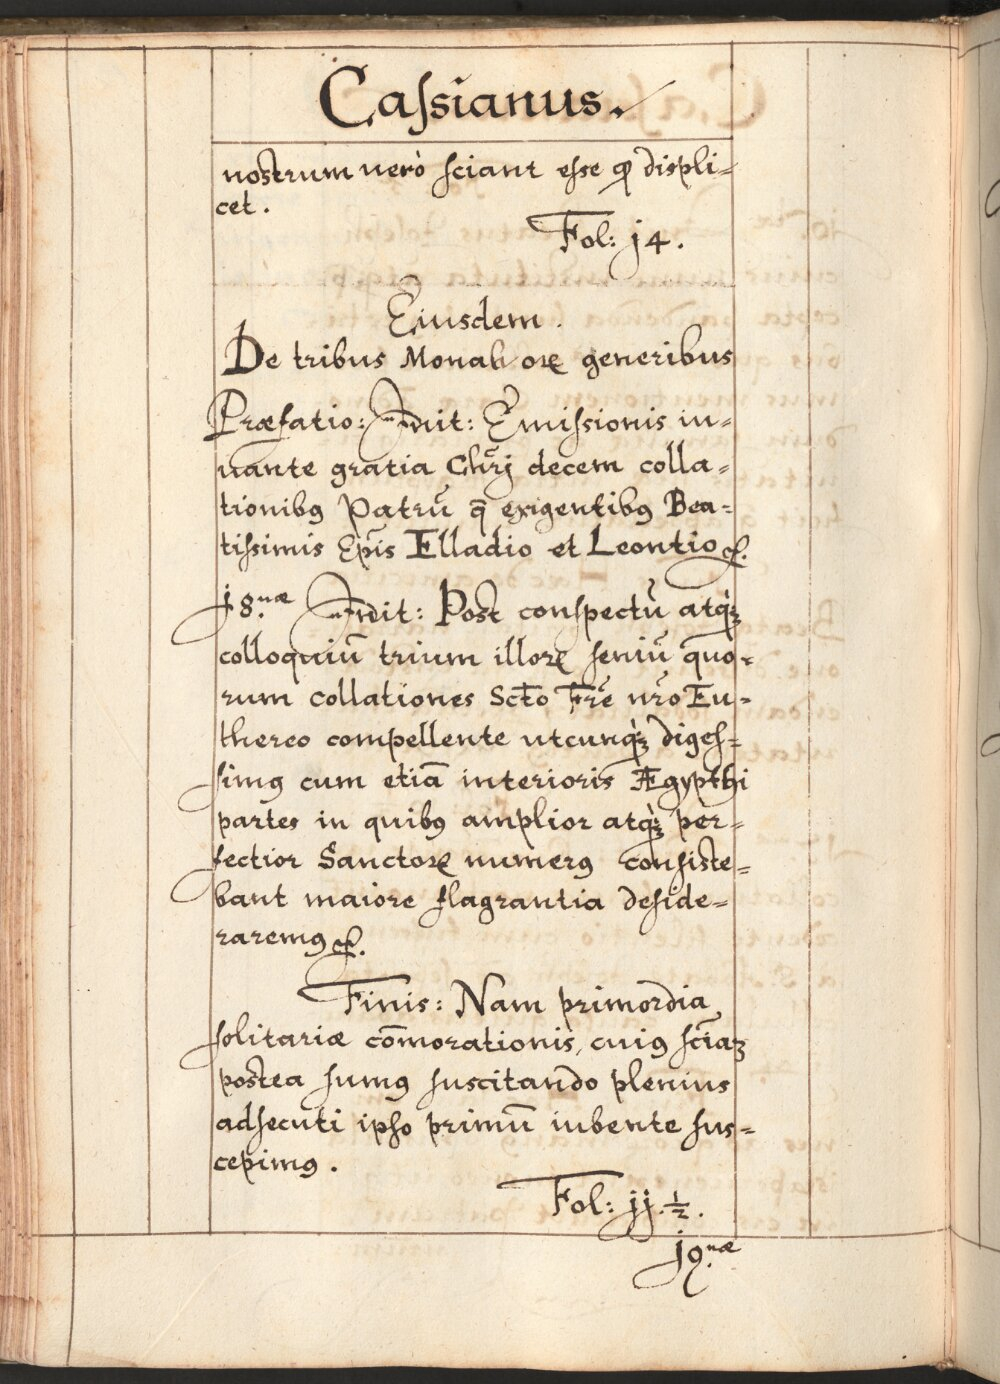 Cassianus.
nostrum verò sciant esse qd displi=
cet.
Fol: j4.
Eiusdem.
De tribus Monah orꝝ generibus
Præfatio: Indit: Emissionis iu=
uante gratia Chrj decem colla=
tionibꝰ Patrū q̄ exigentibꝰ Bea=
tissimis Ep̄is Elladio et Leontio &.
j8.næ Indit: Post conspectū atq́ꝫ
colloquiū trium illorꝝ seniū quo=
rum collationes Scto Fr̄e nr̄o Eu=
chereo compellente utcunq́ꝫ diges=
simꝰ cum etiā interioris Ægypthi
partes in quibꝰ amplior atq́ꝫ per=
fectior Sanctorꝝ numerꝰ consiste=
bant maiore flagrantia deside=
raremꝰ &.
Finis: Nam primordia
solitariæ com̄orationis, cuiꝰ scīaꝫ
postea sumꝰ suscitando plenius
adsecuti ipso primū iubente sus=
cepimꝰ.
Fol: jj.½.
j9.næ